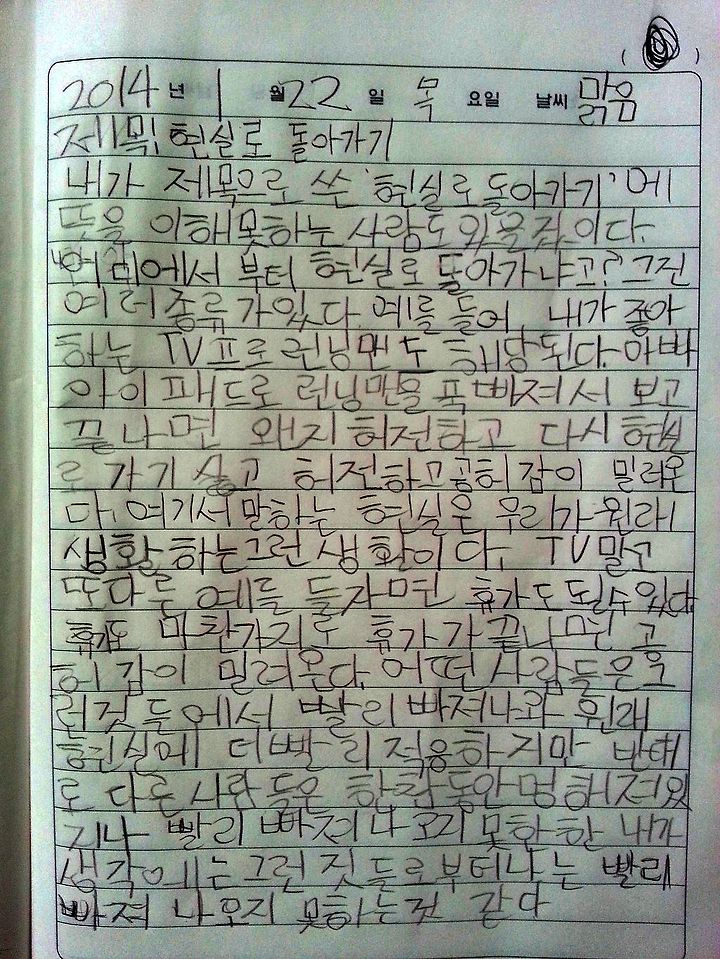 2014 년 1 월 22 일 목 요일 날씨 맑음
제목: 현실로 돌아가기
내가 제목으로 쓴 '현실로 돌아가기'에
뜻을 이해못하는 사람도 있을 것이다.
어디에서 부터 현실로 돌아가냐고? 그건
여러 종류가 있다. 예를 들어, 내가 좋아
하는 TV프로 런닝맨도 해당된다. 아빠
아이패드로 런닝맨을 푹 빠져서 보고
끝나면 왠지 허전하고 다시 현실
로 가기 싫고 허전하고 공허감이 밀려온
다. 여기서 말하는 현실은 우리가 원래
생활 하는 그런 생활이다. TV말고
또다른 예를 들자면 휴가도 될수있다.
휴가도 마찬가지로 휴가가 끝나면 공
허감이 밀려온다. 어떤 사람들은 그
런것들에서 빨리 빠져나와 원래
현실에 더빨리 적응하지만 반대
로 다른 사람들은 한참동안 멍해져있
거나 빨리 빠져나오지 못한한 내가
생각에는 그런 것들로부터 나는 빨리
빠져 나오지 못하는것 같다